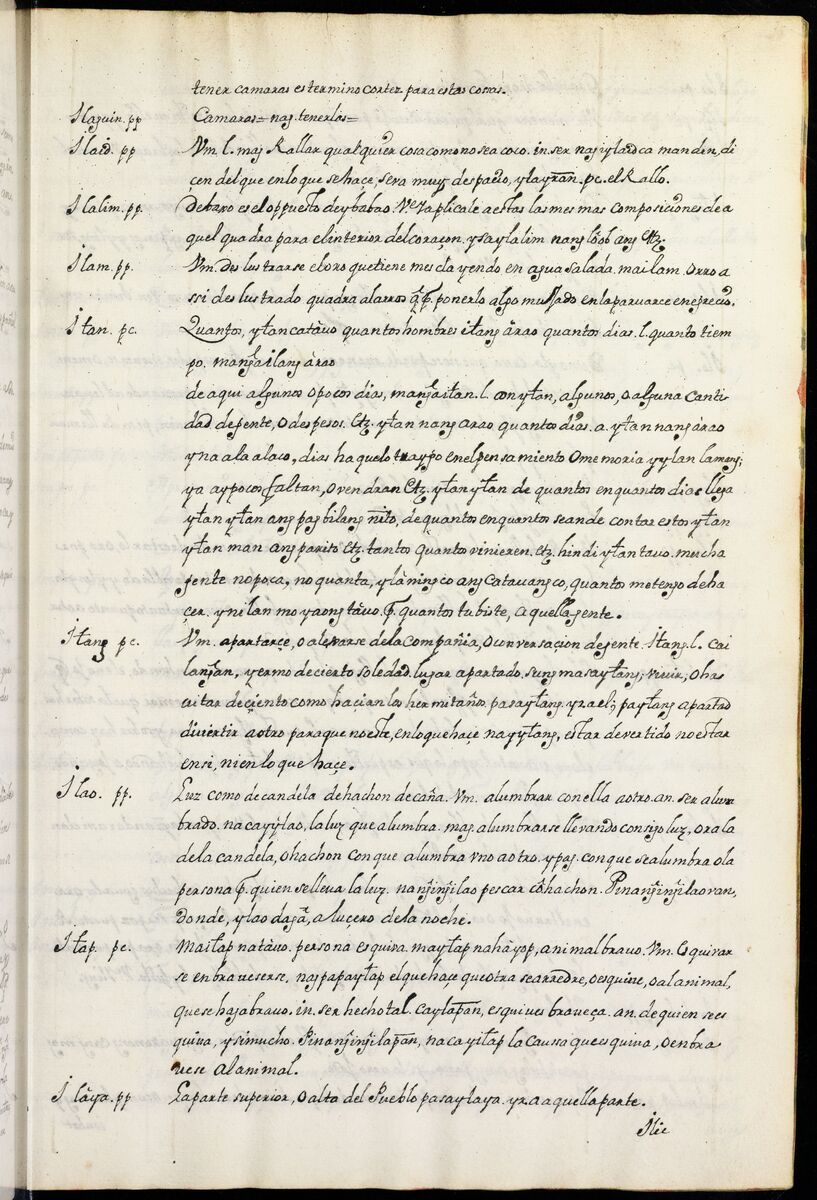 tener camaras es termino cortez para estas cosas.
Ilaguin. pp Camaras= nag. tenerlas=
Ilaid. pp Vm. l. mag Rallar qualquier cosa como no sea coco. in. ser nag ylaid ca mandin, di
çen del que en lo que se haçe, sera muy despacio, ylayran. pc. el Rallo.
Ilalim. pp. Debaxo es el oppuesto de ybabao. Ve. l aplicale a estas las mesmas composiciones de a
quel quadra para el interior del coraçon. ysaylalim nang loob ang Etz.
Ilam. pp. Vm. Des lustrarse el oro que tiene mescla yendo en agua salada. mailam. orro a
ssi des lustrado quadra al arros q̃ p̃. ponerlo algo mullado en la paruarce enegrecio.
Itan. pc. Quantos, ytan catàuo quantos hombres itang àrao quantos dias. l. quanto tiem
po. mang̃a ilang àrao
de aqui algunos o pocos dias, mang̃a itan. l. con ytan, algunos, o alguna canti
dad de gente, o des pesos. Etz. ytan nang arao quantos dias. a. ytan nang àrao
yna ala alaco, dias ha que lo traygo en el pensamiento o memoria yytan lamang;
ya ay pocos faltan, o vendran Etz. ytan ytan de quantos en quantos dias llega
ytan ytan ang pag bilang nito, de quantos en quantos se an de contar estos ytan
ytan man ang parito Etz. tantos quantos vinieren. Etz. hindi ytan tauo. mucha
gente no poca, no quanta, ylàning co ang catauang co, quantos me tengo de ha
çer. ynilan mo yaong tàuo. p̃. quantos tubiste, a quella gente.
Itang pc. Vm. apartarçe, o alexarse de la compañia, o conversaçion de gente. Itang. l. cai
lang̃an, yermo decierto soledad. lugar apartado. sung masaytang; viuir, o has
uitar deçiento como haçian los hermitaños. pasaytang. yr a el; paytang apartado
diuertir a otro para que no este, en lo que haçe naytang, estar devertido no estar
en si, ni en lo que haçe.
Ilao. pp. Luz como de candela de hachon de caña. Vm. alumbrar con ella a otro. an. ser alum
brado. nacayilao, la luz que alumbra. mag. alumbrarse llevando consigo luz, o rala
de la candela, o hachon con que alumbra vno a otro. ypag. con que se alumbra o la
persona p̃. quien se lleua la luz. nang̃ing̃ilao pescar cō hachon. Pinang̃ing̃ilaovan,
donde, ylao dagà, a luçero de la noche.
Itap. pc. Maitap na tàuo. persona esquiva. maytap na hàyop, animal brauo. Vm. Esquivar
se enbraueserse. nagpapaytap el que haçe que otra se arredre, o esquiue, o al animal,
que se haga brauo. in. ser hecho tal. caytapan, esquiues braueça. an. de quien se es
quiua, y si mucho. Pinang̃ing̃ilapan, nacayitap la caussa que esquiua, o enbra
uese al animal.
Ilàya. pp La parte superior, o alto del Pueblo pasaylaya. yr a aquella parte.
Ilic